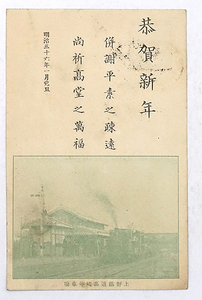 恭賀新年
併謝平素之疎遠
尚祈高堂之萬福
明治三十六年一月元旦